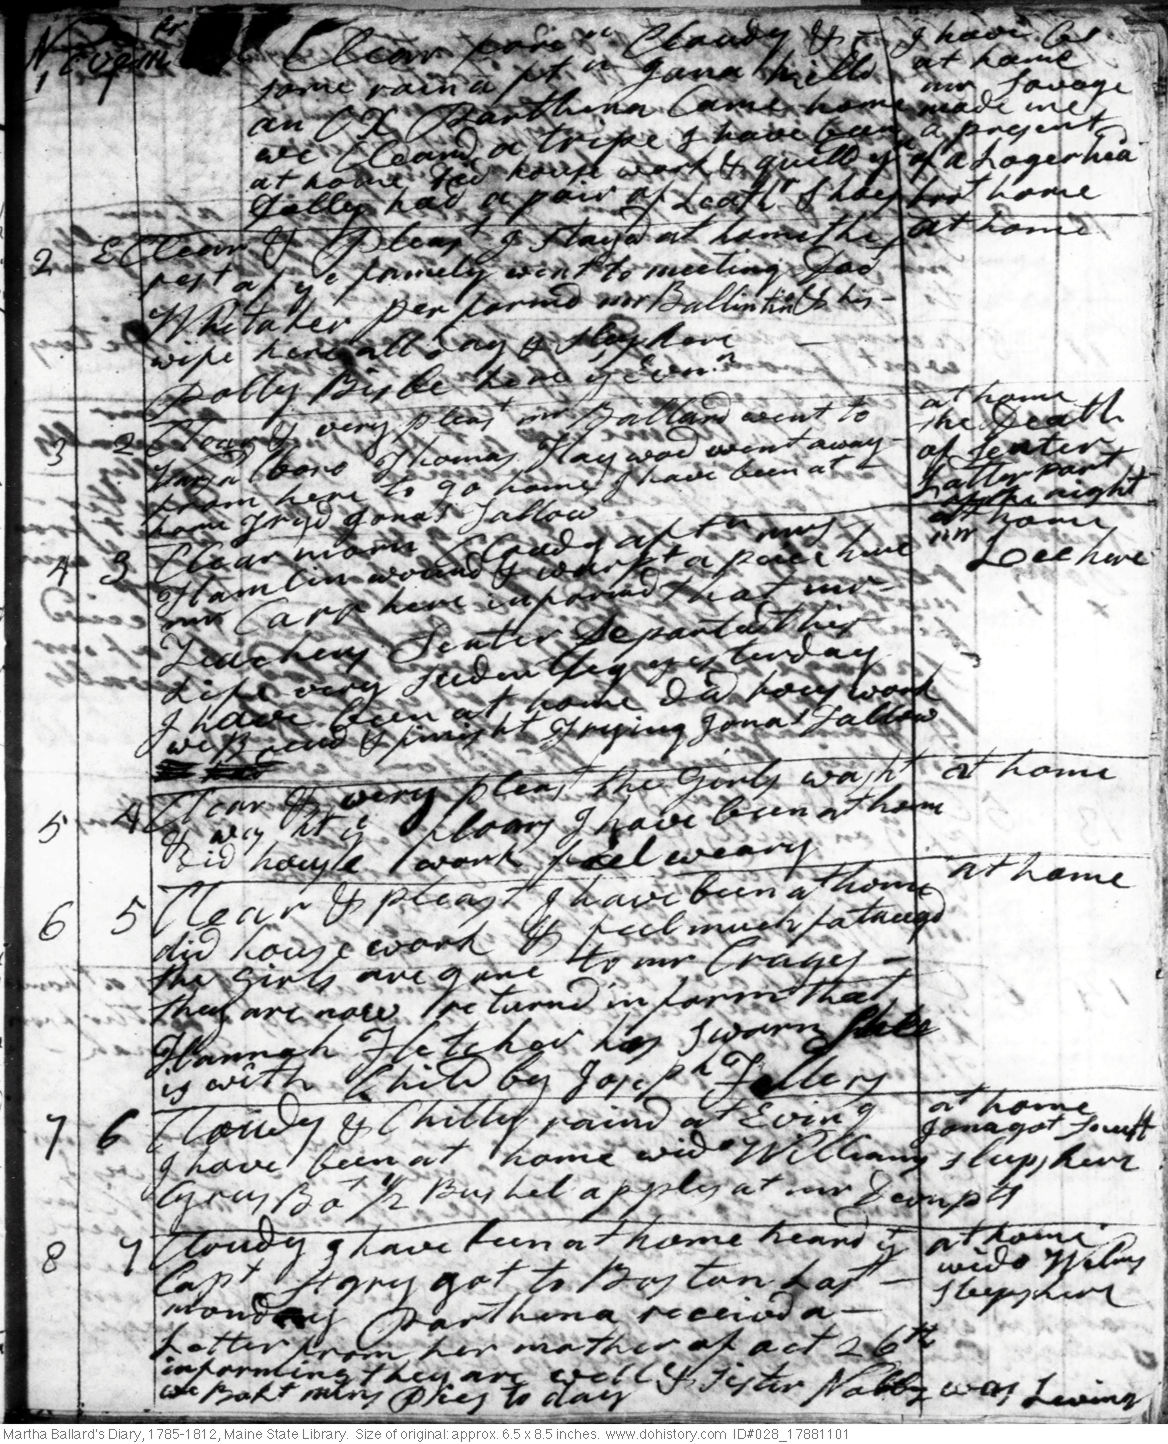 1 7 Clear fore n Cloudy & I have been
some rain aft n Jona killd at home
an OX Parthena Came home mr Savage made me
we Cleand a tripe I have been a present
at home did house work & quilld of a Logerhead
Dolly had a pair of Leathr Shoes brot home
2 E Clear & Pleast I stayd at home the at home
rest of ye famely went to meeting
Whitaker performd mr Ballintine & his
wife here all day & sleep here
Polly Bisbe here ye Evn.n
3 2 Clear & very pleast mr Ballard went to at home
Vassalboro Thomas Haywood went away the Death
from here to go home I have been at of Senter
home Tryd Jonas Tallow Latter part of the night
4 3 Clear morn Cloudy aftn mrs at home
Hamlin wound & warpt a peice here mr Lee here
mr Carr here informd that mr
Zeacheus Senter Departed this
Life very sudentley yesterday
I have been at home did hous work
we Bread & finisht Trying Jonas Tallow
5 4 Clear & very pleast the Girls washt at home
& washt ye floors I have been at home
did house work feel weary
6 5 Clear & pleast I have been at home at home
did house work & feel much fatauegd
the Girls are gone to mr Crages
they are now returnd inform that
Hannah Fletcher has Sworn shee
is with Child by Joseph Fellers
7 6 Cloudy & Chilly raind at Eving at home
I have been at home wido Williams sleeps here
Jona got
Cyrus Bot 1/2 Bushel apples at mr
8 7 Cloudy I have been at home heard yt at home
Capt got to Boston Last wido Wilms
monday Parthena receivd a sleeps here
Letter from her mother of oct 26th
informing they are well & Sister Nabby was Living
we Bakt minc Pies to day
Martha Ballard's Diary, 1785-1812, Maine State Library. Size of original: approx. 6.5 x 8.5 inches. www.dohistory.com ID#028_17881101